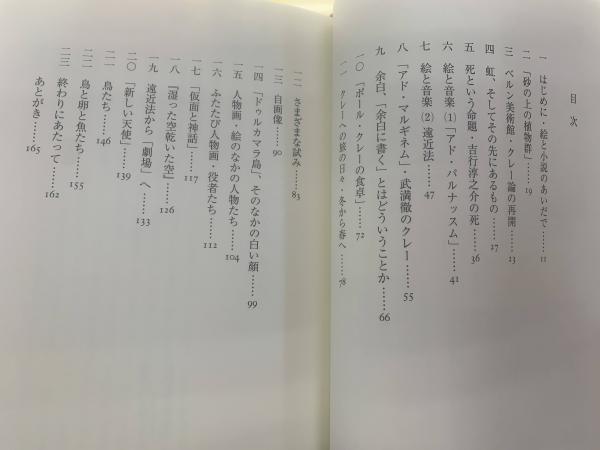 目次
一 はじめに・絵と小説のあいだで……11
二 「砂の上の植物群」……19
三 ベルン美術館・クレー論の再開……13
四 虹、そしてその先にあるもの……17
五 死という命題・吉行淳之介の死……36
六 絵と音楽(1)「アド・パルナッスム」……41
七 絵と音楽(2)遠近法……47
八 「アド・マルギネム」・武満徹のクレー……55
九 余白、「余白に書く」とはどういうことか……66
一〇 「ポール・クレーの食卓」……72
一一 クレーへの旅の日々・冬から春へ……78
一二 さまざまな試み……83
一三 自画像……90
一四 「ドゥルカマラ島」、そのなかの白い顔……99
一五 人物画・絵のなかの人物たち……104
一六 ふたたび人物画・役者たち……112
一七 「仮面と神話」……117
一八 『湿った空乾いた空』……126
一九 遠近法から「劇場」へ……133
二〇 「新しい天使」……139
二一 鳥たち……146
二二 鳥と卵と魚たち……155
二三 終わりにあたって……162
あとがき……165